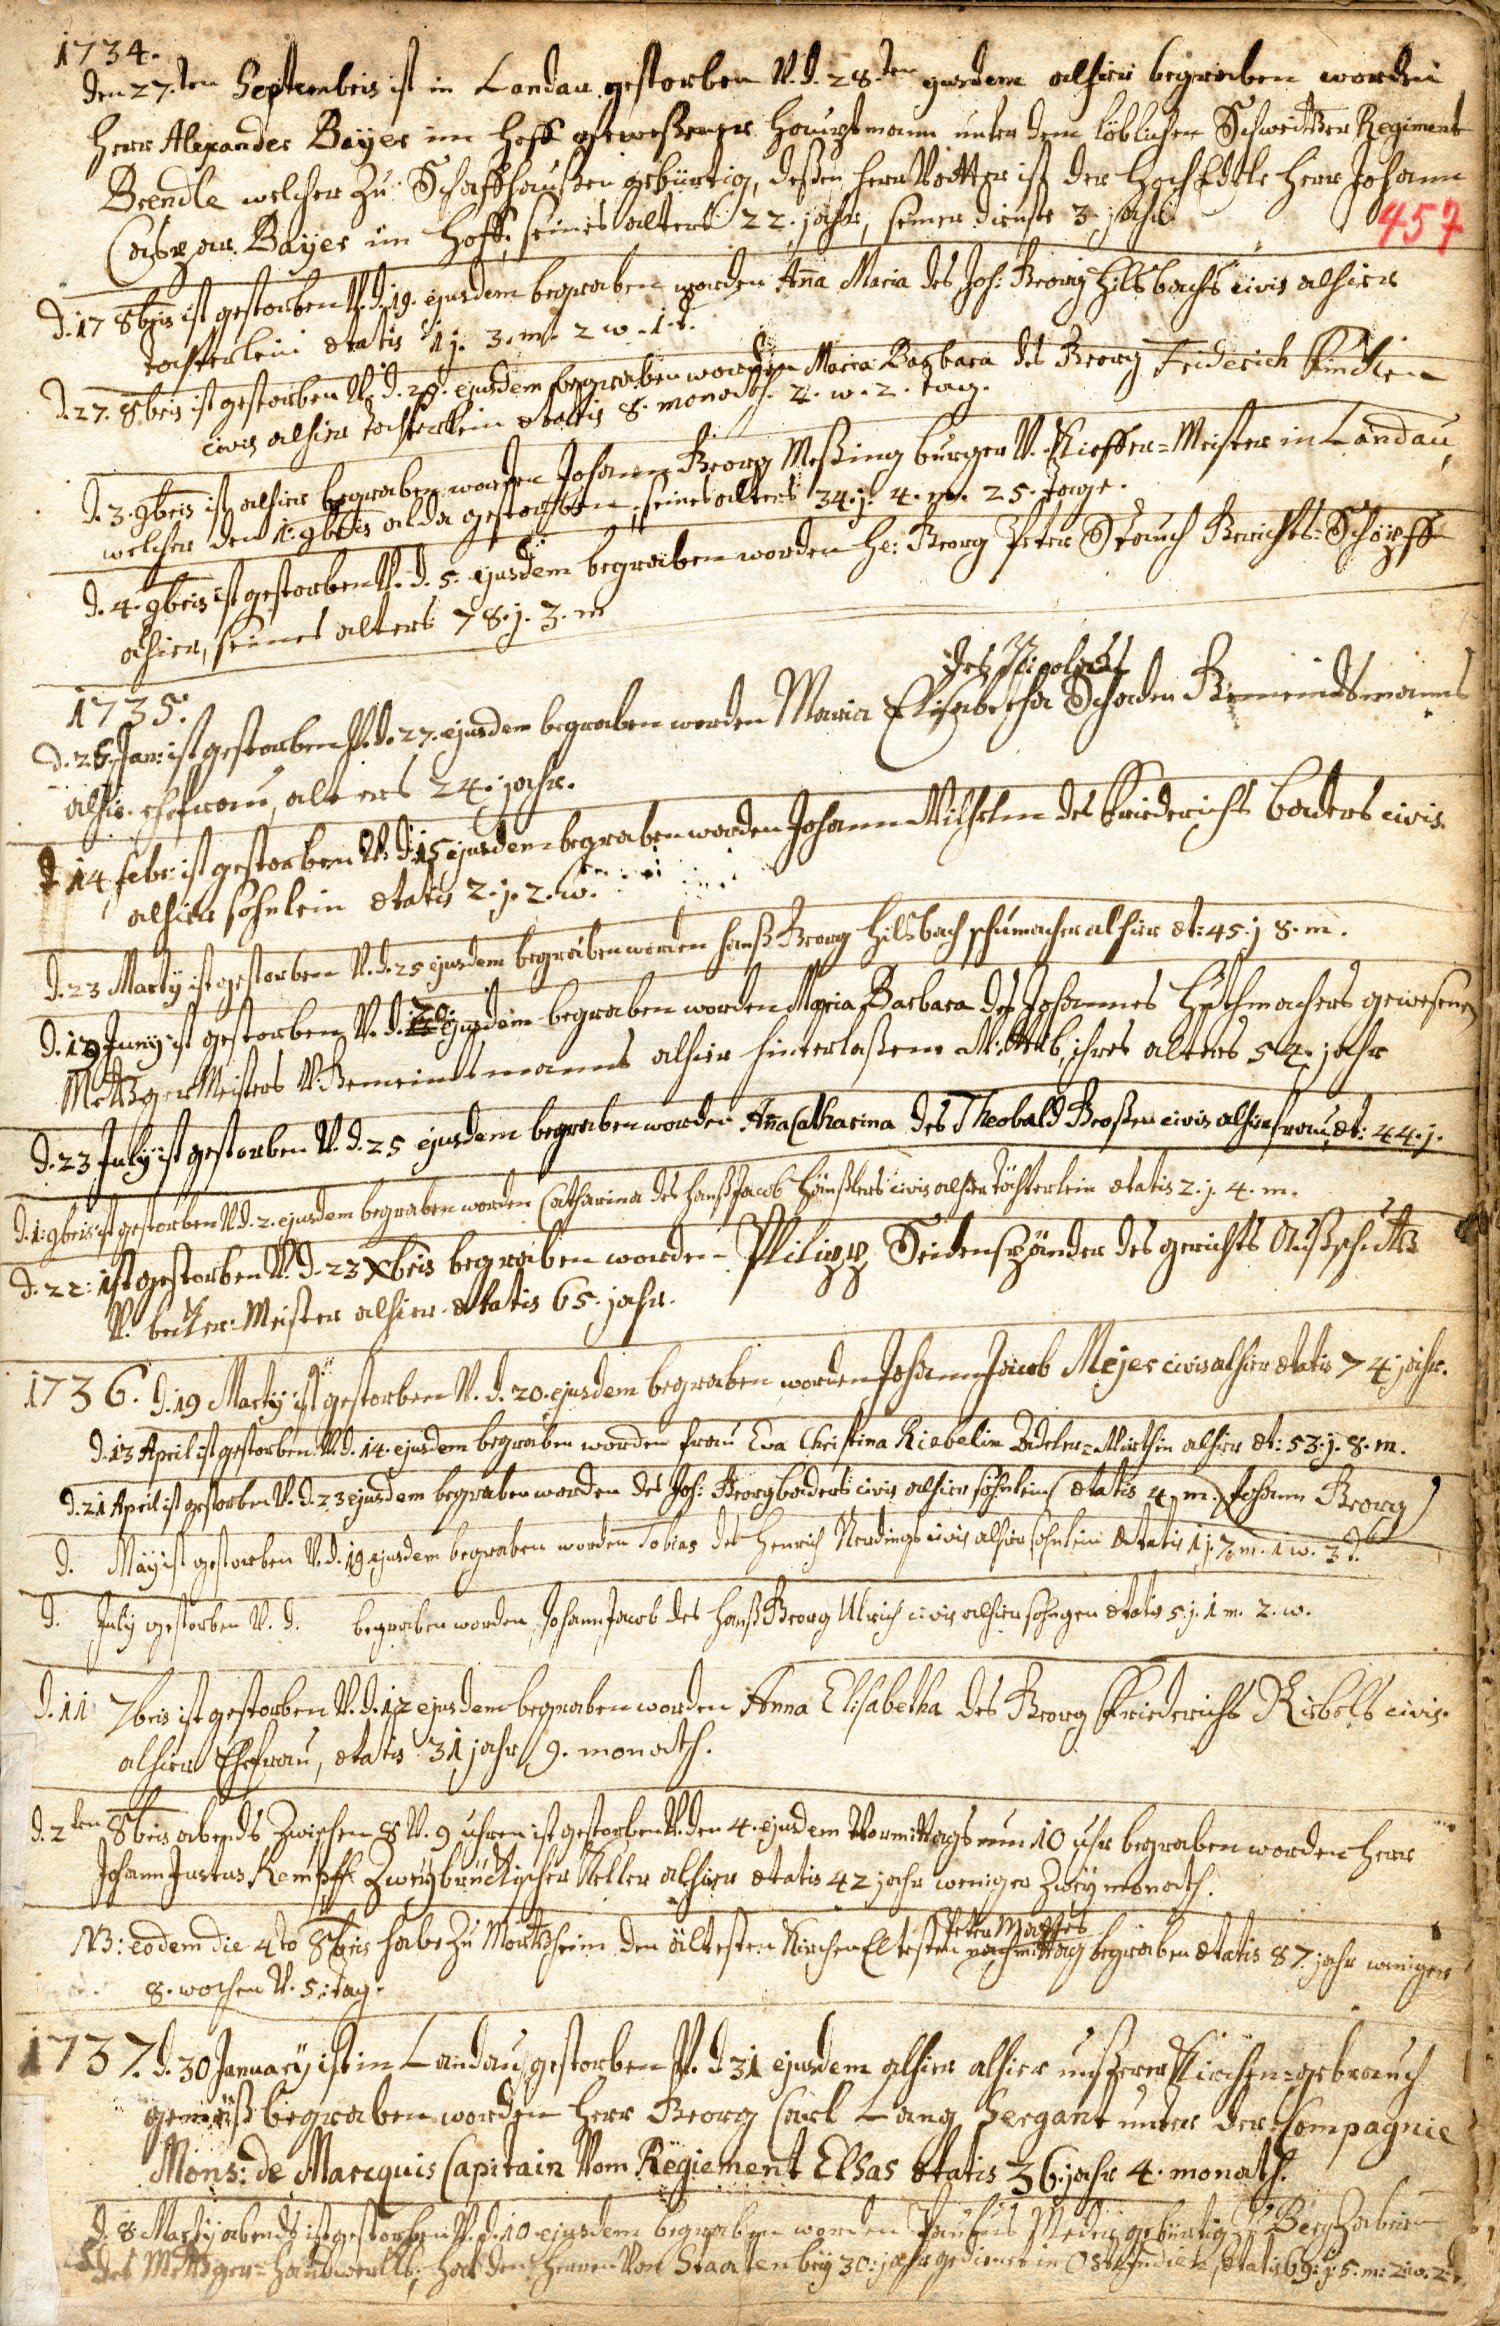 1734.
den 27.ten Septembris ist in Landau gestorben V. d. 28.ten ejusdem alhier begraben worden
Herr Alexander Bayer im Hoff gewesener Hauptmann unter dem löblichen Schweitzer Regiment
Brendle welcher zu Schaffhaußen gebürtig, deßen Herr Vatter ist der HochEdle Herr Johann
Caspar Bayer im Hoff, seines alters 22. jahr, seiner dienste 3. jahr
457
d. 17 8bris ist gestorben V. d. 19. ejusdem begraben worden Aña Maria des Joh: Georg Hilsbachs civis alhier
töchterlein ætatis 1 j. 3. m. 2 w. 1. d.
d. 27. 8bris ist gestorben V. d. 29. ejusdem begraben worden Maria Barbara des Georg Friderich
civis alhier töchterlein ætatis 8. monath. 2. w. 2. tag.
d. 3. 9bris ist alhier begraben worden Johann Georg Meßing burger V. Kieffer-Meister in Landau,
welcher den 1. 9bris alda gestorben, seines alters 34. j. 4. m. 25. tage.
d. 4. 9bris ist gestorben V. d. 5. ejusdem begraben worden He: Georg Peter Strauch Gerichts-Schöpff
alhier, seines alters 78. j. 3. m
1735.
des Nicolaus
d. 25. Jan: ist gestorben V. d. 27. ejusdem begraben worden Maria Elisabetha Schaden Gemeindsmanns
alhier ehefrau, alters 24. jahr.
d 14 febr: ist gestorben V. d. 15 ejusdem begraben worden Johann Wilhelm des Friderichs baders civis
alhier söhnlein ætatis 2. j. 2. w.
d. 23 Martij ist gestorben V. d. 25 ejusdem begraben worden Hanß Georg Hilsbach schumacher alhier æt: 45. j 8. m.
d. 19 Junij ist gestorben V. d. 20 ejusdem begraben worden Maria Barbara des Johannes Huthmachers gewesenen
Metzger Meisters V. Gemeindsmanns alhier hinterlaßene Wittib, ihres alters 52. jahr
d. 23 Julij ist gestorben V. d. 25 ejusdem begraben worden Aña Catharina des Theobald Großen civis alhier frau, æt: 44. j.
d. 1. 9bris ist gestorben V. d. 2. ejusdem begraben worden Catharina des Hanß Jacob civis alhier töchterlein ætatis 2. j. 4. m.
d. 22. ist gestorben V. d. 23 Xbris begraben worden Philipp Seidenspänder des gerichts Außschutz
V. becker-Meister alhier ætatis 65. jahr.
1736. d. 19 Martij ist gestorben V. d. 20. ejusdem begraben worden Johann Jacob Mejer civis alhier ætatis 74 jahr.
d. 13 April ist gestorben V. d. 14. ejusdem begraben worden frau Eva Christina Riebelin Adeler-Würthin alhier æt: 53. j. 8. m.
d. 21 April ist gestorben V. d. 23 ejusdem begraben worden des Joh: Georg baders civis alhier söhnlein (ætatis 4. m.) Johann Georg
d. Maij ist gestorben V. d. 19 ejusdem begraben worden Tobias des Henrich Nerdings civis alhier söhnlein ætatis 1 j. 7. m. 1 w. 3 d.
d. Julij gestorben V. d. begraben worden, Johann Jacob des Hanß Georg Ulrich civis alhier söhngen ætatis 5 j. 1 m. 2. w.
d. 11 7bris ist gestorben V. d. 12 ejusdem begraben worden Anna Elisabetha des Georg Friderichs Riebels civis
alhier Ehefrau, ætatis 31 jahr, 9. monath.
d. 2ten 8bris abends zwischen 8 V. 9 uhren ist gestorben V. den 4. ejusdem Vormittags um 10 uhr begraben worden Herr
Johann Justus Kempff Zweybrückischer Keller alhier ætatis 42 jahr weniger zwey monath.
Peter Matthes
NB: eodem die 4to 8bris habe zu Mörtzheim den ältesten KirchenEltesten nachmittag begraben ætatis 87. jahr weniger
8. wochen V. 5. tag.
1737. d. 30 January ist in Landau gestorben V. d 31 ejusdem alhier alhier unßerer Kirchen-gebrauch
gemäß begraben worden Herr Georg Carl Lang Sergant unter der Compagnie
Mons: de Marcquis Capitain Vom Regiement Elsas ætatis 36. jahr 4. monath.
d. 8 Martij abends ist gestorben V. d. 10 ejusdem begraben worden Paulus Meder gebürtig zu Bergzabern
des Metzger-Handwercks, hat den Herren Von Staaten bey 30. jahr gedienet in OstIndien, ætatis 69. j. 5. m. 2. w. 2.